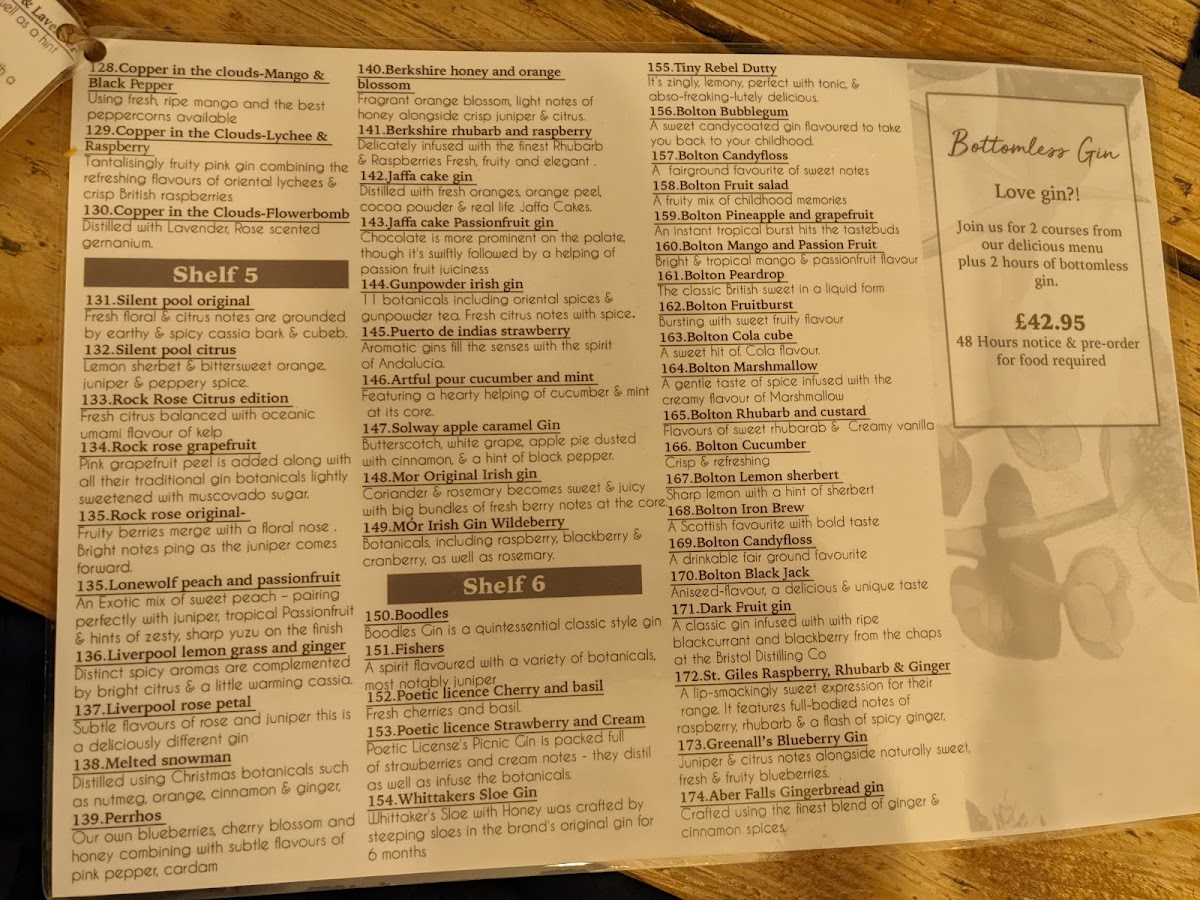 & Lave
well as a hint
th a
128.Copper in the clouds-Mango &
Black Pepper
Using fresh, ripe mango and the best
peppercorns available
129.Copper in the Clouds-Lychee &
Raspberry
Tantalisingly fruity pink gin combining the
refreshing flavours of oriental lychees &
crisp British raspberries
130.Copper in the Clouds-Flowerbomb
Distilled with Lavender, Rose scented
gernanium.
Shelf 5
131.Silent pool original
Fresh floral & citrus notes are grounded
by earthy & spicy cassia bark & cubeb.
132.Silent pool citrus
Lemon sherbet & bittersweet orange,
juniper & peppery spice.
133.Rock Rose Citrus edition
Fresh citrus balanced with oceanic
umami flavour of kelp
134.Rock rose grapefruit
Pink grapefruit peel is added along with
all their traditional gin botanicals lightly
sweetened with muscovado sugar.
135.Rock rose original-
Fruity berries merge with a floral nose .
Bright notes ping as the juniper comes
forward.
135.Lonewolf peach and passionfruit
An Exotic mix of sweet peach – pairing
perfectly with juniper, tropical Passionfruit
& hints of zesty, sharp yuzu on the finish
136.Liverpool lemon grass and ginger
Distinct spicy aromas are complemented
by bright citrus & a little warming cassia.
137.Liverpool rose petal
Subtle flavours of rose and juniper this is
a deliciously different gin
138.Melted snowman
Distilled using Christmas botanicals such
as nutmeg, orange, cinnamon & ginger,
139.Perrhos
Our own blueberries, cherry blossom and
honey combining with subtle flavours of
pink pepper, cardam
140.Berkshire honey and orange
blossom
Fragrant orange blossom, light notes of
honey alongside crisp juniper & citrus.
141.Berkshire rhubarb and raspberry
Delicately infused with the finest Rhubarb
& Raspberries Fresh, fruity and elegant .
142.Jaffa cake gin
Distilled with fresh oranges, orange peel,
cocoa powder & real life Jaffa Cakes.
143.Jaffa cake Passionfruit gin
Chocolate is more prominent on the palate,
though it's swiftly followed by a helping of
passion fruit juiciness
144.Gunpowder irish gin
11 botanicals including oriental spices &
gunpowder tea. Fresh citrus notes with spice.
145.Puerto de indias strawberry
Aromatic gins fill the senses with the spirit
of Andalucia.
146.Artful pour cucumber and mint
Featuring a hearty helping of cucumber & mint
at its core.
147.Solway apple caramel Gin
Butterscotch, white grape, apple pie dusted
with cinnamon, & a hint of black pepper.
148.Mor Original Irish gin
Coriander & rosemary becomes sweet & juicy
with big bundles of fresh berry notes at the core
149.MÓr Irish Gin Wildeberry
Botanicals, including raspberry, blackberry &
cranberry, as well as rosemary.
Shelf 6
150.Boodles
Boodles Gin is a quintessential classic style gin
151.Fishers
A spirit flavoured with a variety of botanicals,
most notably juniper
152.Poetic licence Cherry and basil
Fresh cherries and basil.
153.Poetic licence Strawberry and Cream
Poetic License's Picnic Gin is packed full
of strawberries and cream notes - they distil
as well as infuse the botanicals.
154.Whittakers Sloe Gin
Whittaker's Sloe with Honey was crafted by
steeping sloes in the brand's original gin for
6 months
155.Tiny Rebel Dutty
It's zingly, lemony, perfect with tonic, &
abso-freaking-lutely delicious.
156.Bolton Bubblegum
A sweet candycoated gin flavoured to take
you back to your childhood.
157.Bolton Candyfloss
A fairground favourite of sweet notes
158.Bolton Fruit salad
A fruity mix of childhood memories
159.Bolton Pineapple and grapefruit
An instant tropical burst hits the tastebuds
160.Bolton Mango and Passion Fruit
Bright & tropical mango & passionfruit flavour
161.Bolton Peardrop
The classic British sweet in a liquid form
162.Bolton Fruitburst
Bursting with sweet fruity flavour
163.Bolton Cola cube
A sweet hit of Cola flavour.
164.Bolton Marshmallow
A gentle taste of spice infused with the
creamy flavour of Marshmallow
165.Bolton Rhubarb and custard
Flavours of sweet rhubarab & Creamy vanilla
166. Bolton Cucumber
Crisp & refreshing
167.Bolton Lemon sherbert
Sharp lemon with a hint of sherbert
168.Bolton Iron Brew
A Scottish favourite with bold taste
169.Bolton Candyfloss
A drinkable fair ground favourite
170.Bolton Black Jack
Aniseed-flavour, a delicious & unique taste
171.Dark Fruit gin
A classic gin infused with with ripe
blackcurrant and blackberry from the chaps
at the Bristol Distilling Co
172.St. Giles Raspberry, Rhubarb & Ginger
A lip-smackingly sweet expression for their
range. It features full-bodied notes of
raspberry, rhubarb & a flash of spicy ginger,
173.Greenall's Blueberry Gin
Juniper & citrus notes alongside naturally sweet,
fresh & fruity blueberries.
174.Aber Falls Gingerbread gin
Crafted using the finest blend of ginger &
cinnamon spices,
Bottomless Gin
Love gin?!
Join us for 2 courses from
our delicious menu
plus 2 hours of bottomless
gin.
£42.95
48 Hours notice & pre-order
for food required